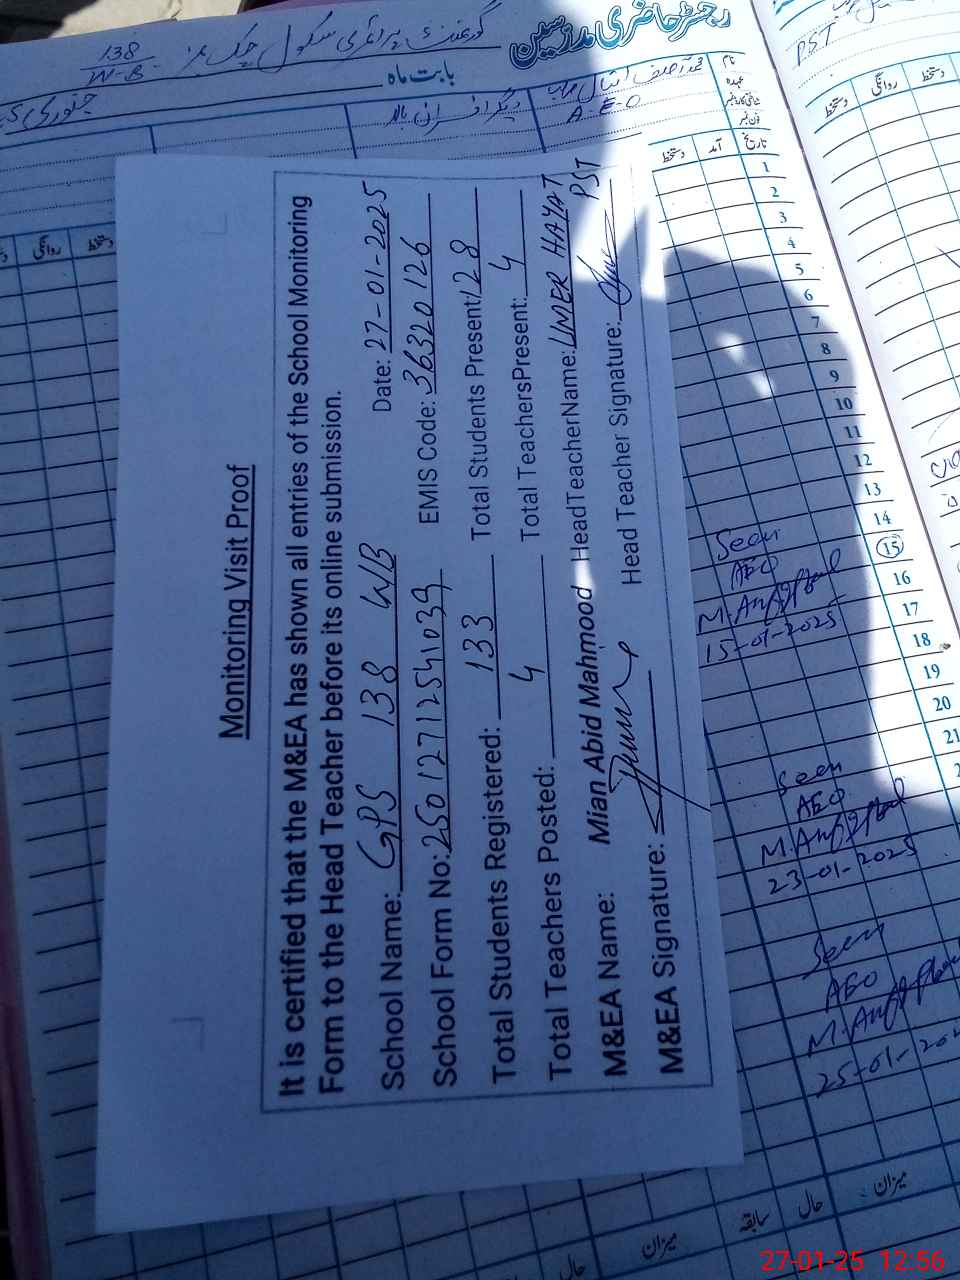 رجسٹر حاضری مدرسین
گورنمنٹ پرائمری سکول چک نمبر 138
W-B
بابت ماہ
جنوری
نام
عہدہ
شناختی کارڈ نمبر
فون نمبر
A-E-O
PST
تاریخ
آمد
دستخط
روانگی
دستخط
روانگی
دستخط
دستخط
Monitoring Visit Proof
It is certified that the M&EA has shown all entries of the School Monitoring
Form to the Head Teacher before its online submission.
School Name: GPS 138 WB Date: 27-01-2025
School Form No: 25012712541039 EMIS Code: 36320126
Total Students Registered: 133 Total Students Present: 128
Total Teachers Posted: 4 Total TeachersPresent: 4
M&EA Name: Mian Abid Mahmood HeadTeacherName: UMER HAYAT
PST
M&EA Signature: Head Teacher Signature:
1
2
3
4
5
6
7
8
9
10
11
12
13
14
15
16
17
18
19
20
21
Seen
AEO
15-01-2025
Seen
AEO
23-01-2025
Seen
AEO
25-01-202
میزان
حال
سابقہ
میزان
حال
27-01-25 12:56